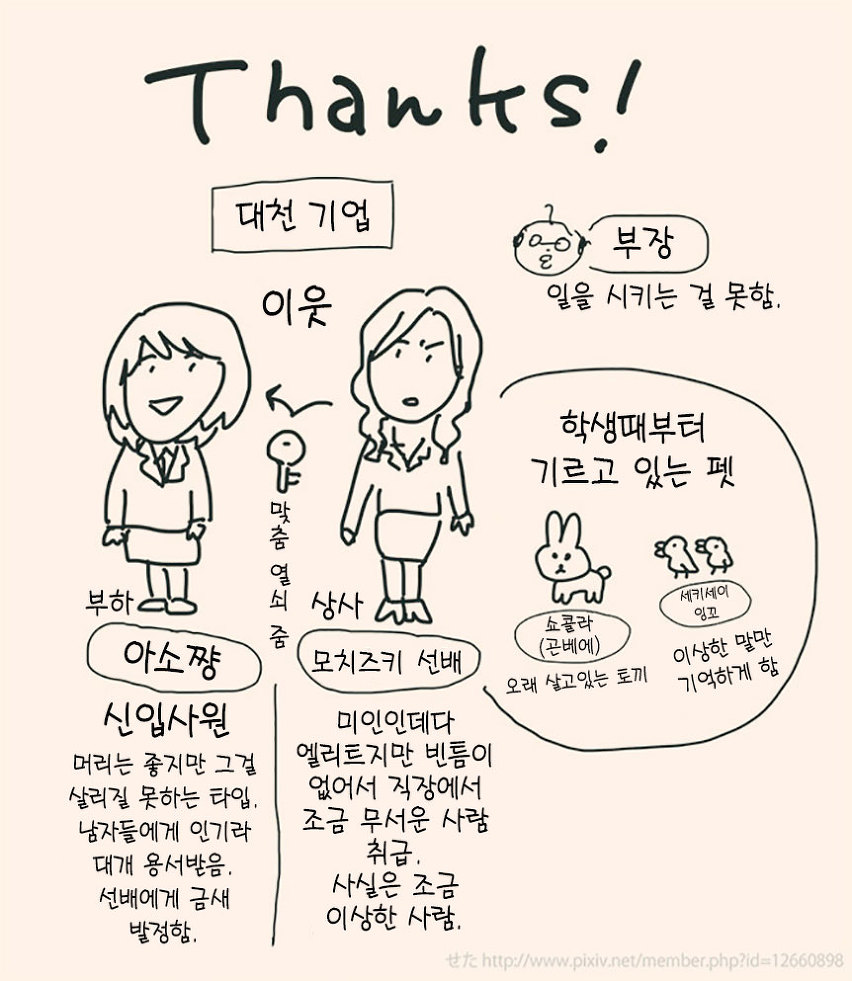 Thanks!
대천 기업
부장
일을 시키는 걸 못함.
이웃
학생때부터
기르고 있는 펫
맞춤 열쇠 줌
쇼콜라
(곤베에)
오래 살고있는 토끼
세키세이
잉꼬
이상한 말만
기억하게 함
부하
아소쨩
신입사원
머리는 좋지만 그걸
살리질 못하는 타입.
남자들에게 인기라
대개 용서받음.
선배에게 금새
발정함.
상사
모치즈키 선배
미인인데다
엘리트지만 빈틈이
없어서 직장에서
조금 무서운 사람
취급.
사실은 조금
이상한 사람.
せた http://www.pixiv.net/member.php?id=12660898